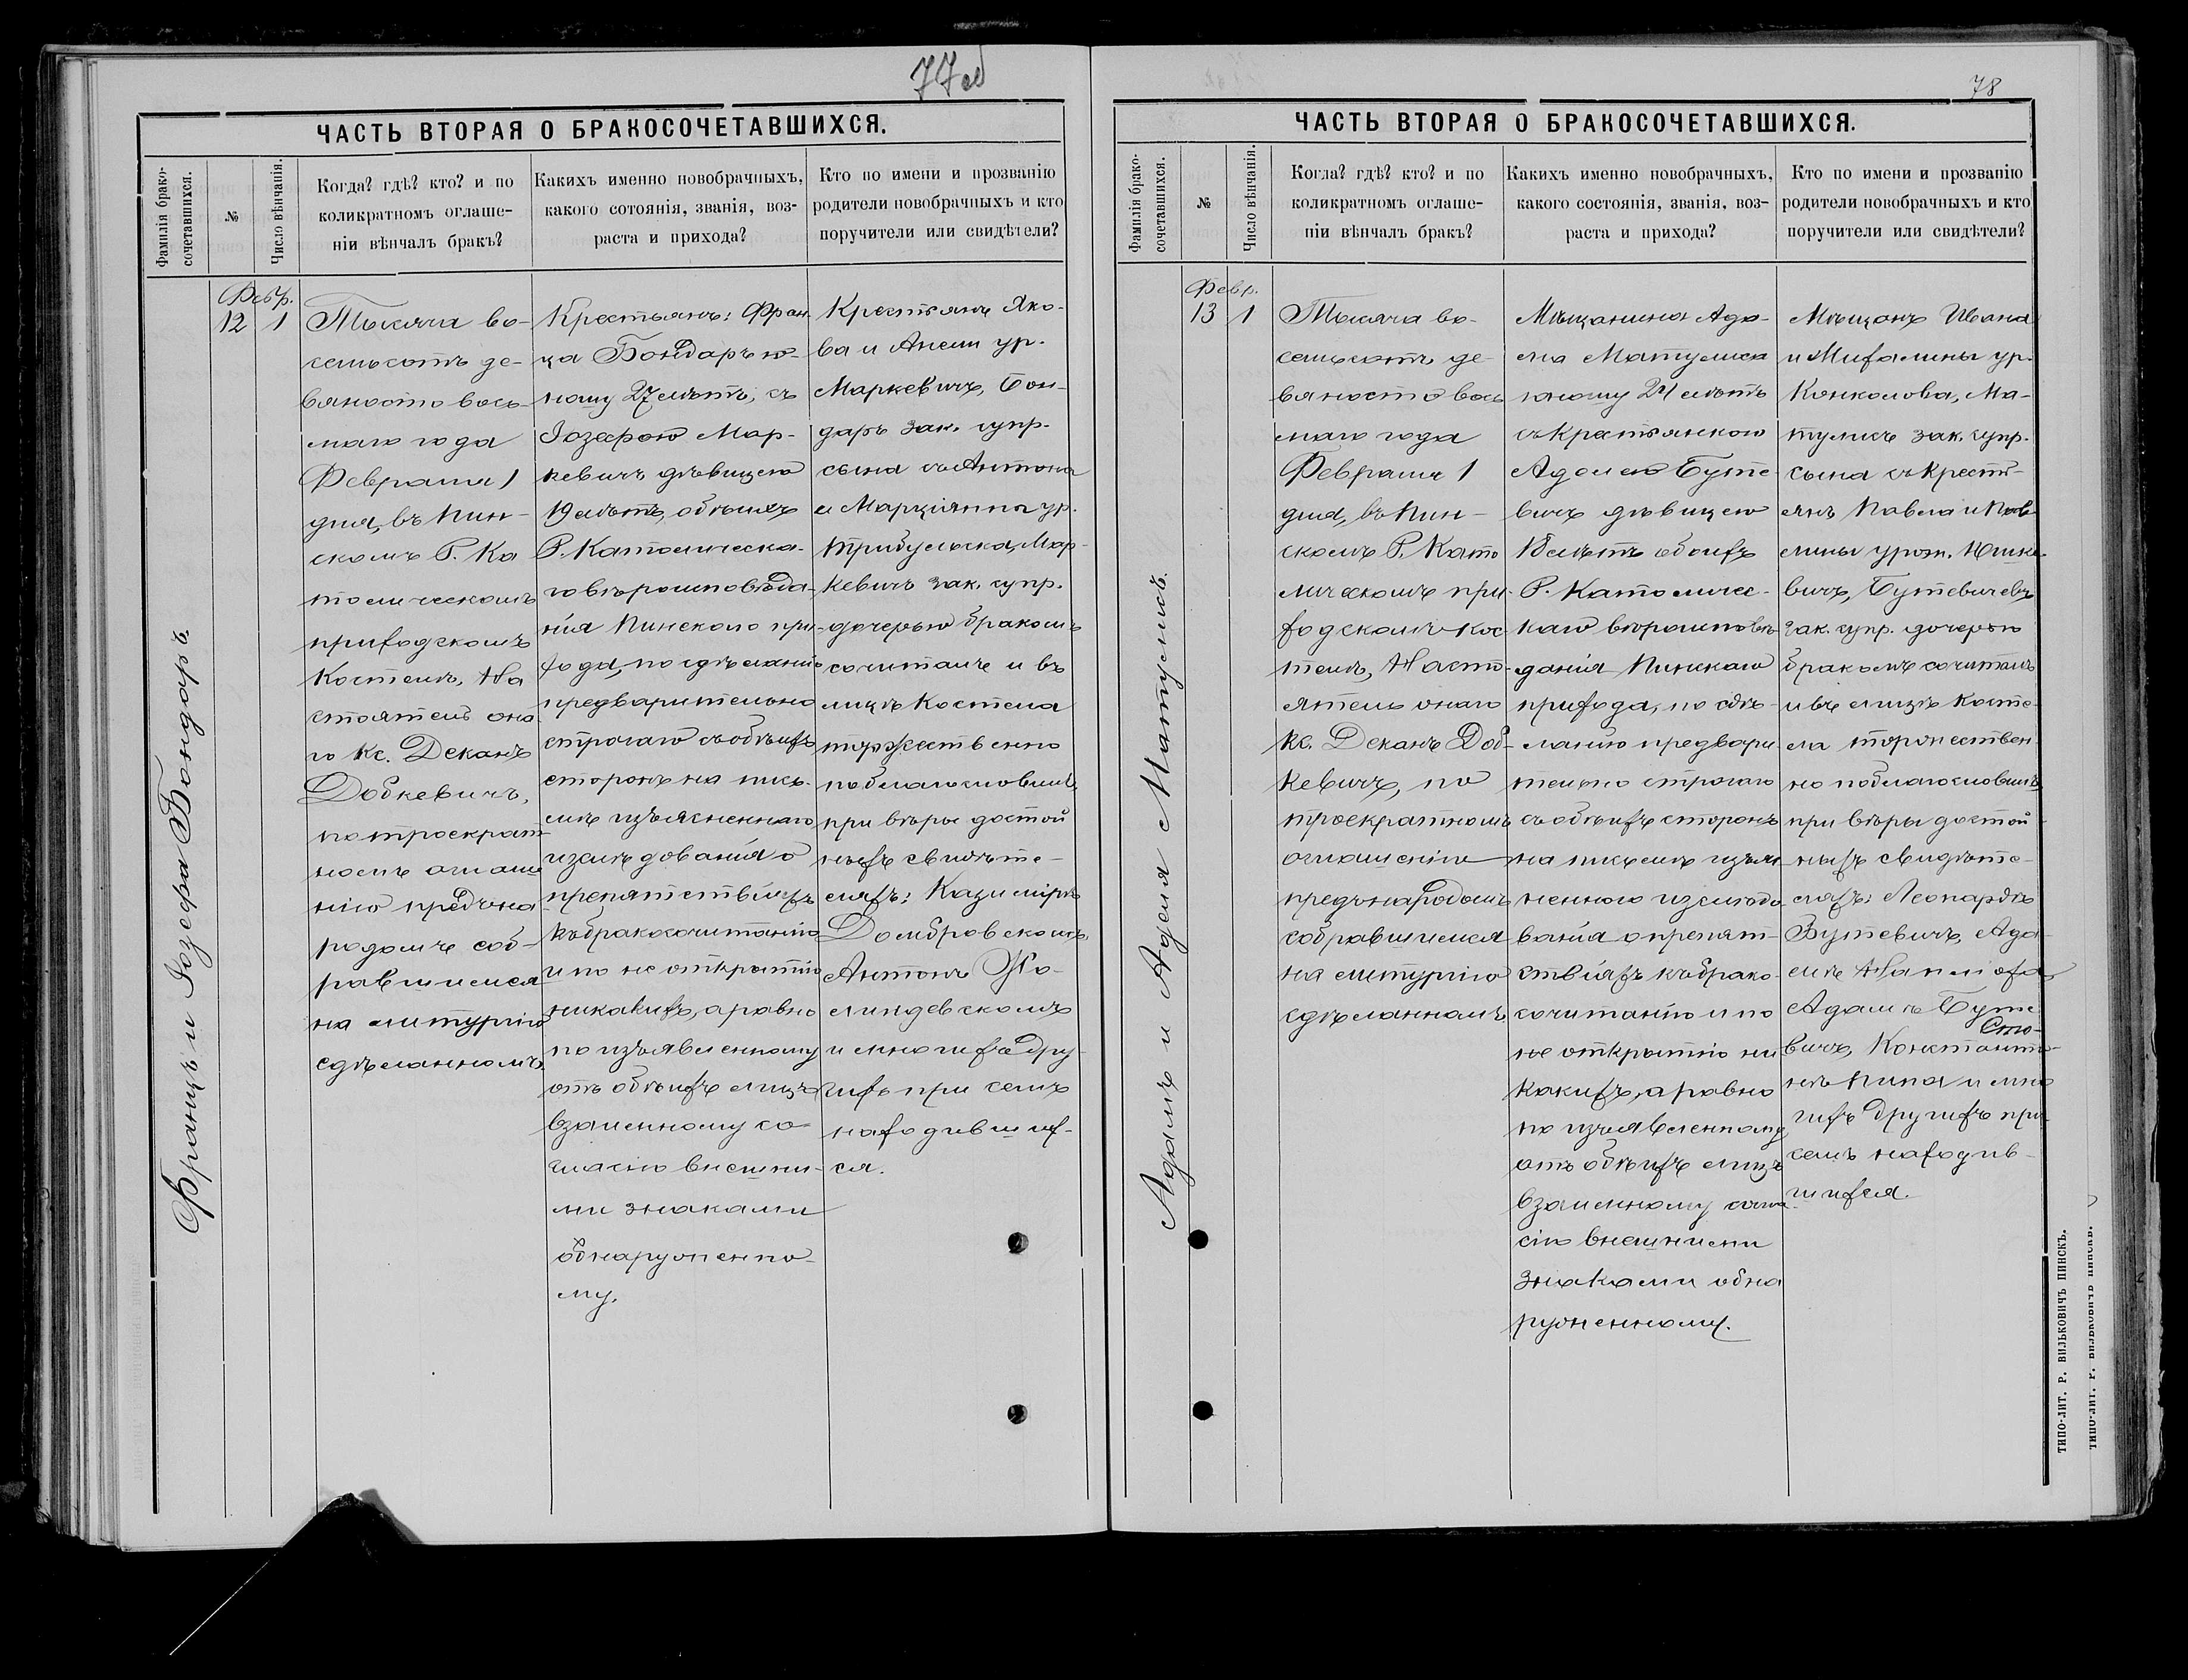 77об
ЧАСТЬ ВТОРАЯ О БРАКОСОЧЕТАВШИХСЯ.
Фамилія брако-
сочетавшихся.
№
Число вѣнчанія.
Когда? гдѣ? кто? и по
коликратномъ оглаше-
ніи вѣнчалъ бракъ?
Какихъ именно новобрачныхъ,
какого сотоянія, званія, воз-
раста и прихода?
Кто по имени и прозванію
родители новобрачныхъ и кто
поручители или свидѣтели?
Францъ и Іозефа Бондаръ.
Февр.
12 1
Тысяча во-
семьсотъ де-
вяносто вось-
маго года
Февраля 1
дня, въ Пин-
скомъ Р. Ка
толическомъ
приходскомъ
Костелѣ, На
стоятель она
го Кс. Деканъ
Добкевичъ,
по троекрат
номъ оглаше
нію предъ на
родомъ соб-
равшимся
на литургію
сдѣланномъ.
Крестьянъ: Фран
ца Бондаръ ю-
ношу 27 лѣтъ, съ
Іозефою Мар-
кевичъ дѣвицею
19 лѣтъ, обоихъ
Р. Католическа-
го вѣроисповѣда-
нія Пинскаго при-
хода, по сдѣланію
предварительно
строгаго съ обѣихъ
сторонъ на пись-
мѣ изъясненнаго
изслѣдованія о
препятствіяхъ
къ бракосочитанію
и по не открытію
никакихъ, а равно
по изъявленному
отъ обѣихъ лицъ
взаимному со-
гласію внешни-
ми знаками
обнаруженно-
му.
Крестьянъ Яко-
ва и Анели ур.
Маркевичъ, Бон-
даръ зак. супр.
сына съ Антона
и Марціянны ур.
Трибульска, Мар-
кевичъ зак. супр.
дочерью бракомъ
сочиталъ и въ
лицѣ Костела
торжественно
поблагословилъ,
при вѣры достой
ныхъ свидѣте-
ляхъ: Казимірѣ
Домбровскомъ,
Антонѣ Жо-
линдевскомъ
и многихъ дру-
гихъ при семъ
находивших-
ся.
78
ЧАСТЬ ВТОРАЯ О БРАКОСОЧЕТАВШИХСЯ.
Фамилія брако-
сочетавшихся.
№
Число вѣнчанія.
Когда? гдѣ? кто? и по
коликратномъ оглаше-
ніи вѣнчалъ бракъ?
Какихъ именно новобрачныхъ,
какого состоянія, званія, воз-
раста и прихода?
Кто по имени и прозванію
родители новобрачныхъ и кто
поручители или свидѣтели?
Адамъ и Аделя Матуликъ.
Февр.
13 1
Тысяча во-
семьсотъ де-
вяносто вось
маго года
Февраля 1
дня, въ Пин-
скомъ Р. Като
лическомъ при-
ходскомъ Кос
телѣ, Насто-
ятель онаго
Кс. Деканъ Доб-
кевичъ, по
троекратномъ
оглашенію
предъ народомъ
собравшимся
на литургію
сдѣланномъ,
Мѣщанина Ада-
ма Матулика
юношу 24 лѣтъ
съ крестьянкою
Аделею Буте
вичъ дѣвицею
18 лѣтъ обоихъ
Р. Католичес-
каго вѣроисповѣ-
данія Пинскаго
прихода, по сдѣ-
ланію предвари
тельно строгаго
съ обѣихъ сторонъ
на письмѣ изъяс
неннаго изслѣдо
ванія о препят-
ствіяхъ къ брако-
сочитанію и по
не открытію ни
какихъ, а равно
по изъявленному
отъ обѣихъ лицъ
взаимному согла
сію внешними
знаками обна
руженному.
Мѣщанъ Ивана
и Михалины ур.
Конколова, Ма-
туликъ зак. супр.
сына съ Кресть-
янъ Павла и Пав
лины урож.
вичъ, Бутевичевъ
зак. супр. дочерью
бракомъ сочиталъ
и въ лицѣ Косте-
ла торжествен
но поблагословилъ,
при вѣры достой
ныхъ свидѣте-
ляхъ: Леонардѣ
Бутевичъ, Ада-
мѣ
Адамѣ Буте
вичъ, Константи-
нѣ Пина и мно
гихъ другихъ при
семъ находив-
шихся.
ТИПО-ЛИТ. Р. ВИЛЬКОВИЧЪ ПИНСКЪ.